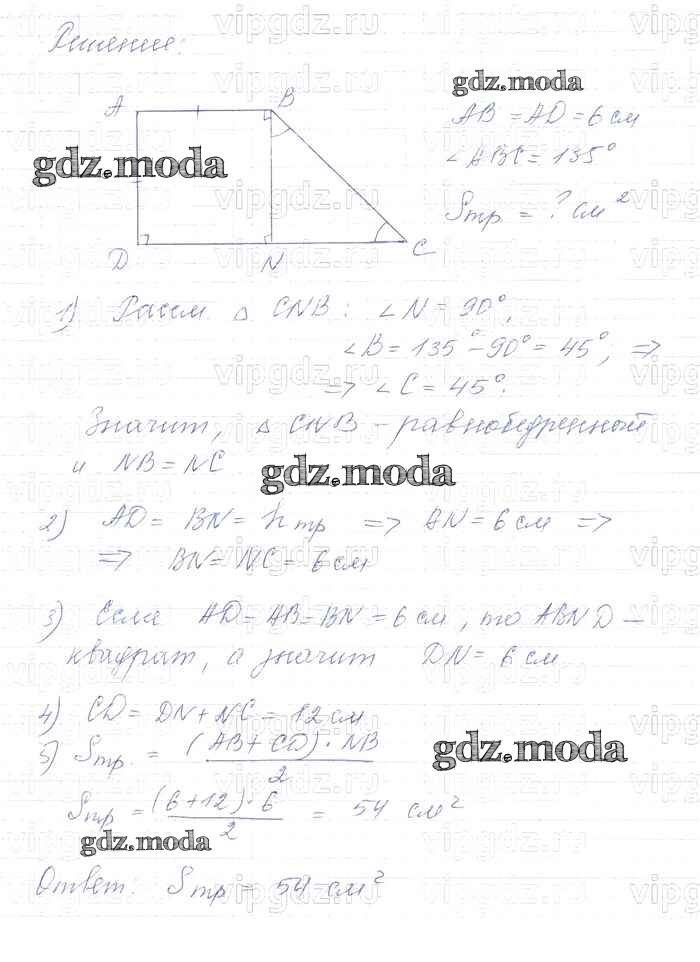 Решение:
gdz.moda
A B
AB = AD = 6 см
∠ABC = 135°
gdz.moda
Sтр = ? см²
D N C
1) Рассм △ CNB : ∠N = 90°,
∠B = 135° - 90° = 45°, =>
=> ∠C = 45°.
Значит, △ CNB - равнобедренный
и NB = NC
gdz.moda
2) AD = BN = hтр => BN = 6 см =>
=> BN = NC = 6 см
3) Если AD = AB = BN = 6 см, то ABND —
квадрат, а значит DN = 6 см
4) CD = DN + NC = 12 см
5) Sтр. = (AB + CD) · NB / 2
gdz.moda
Sтр = (6 + 12) · 6 / 2 = 54 см²
gdz.moda
Ответ: Sтр = 54 см²
vipgdz.ru